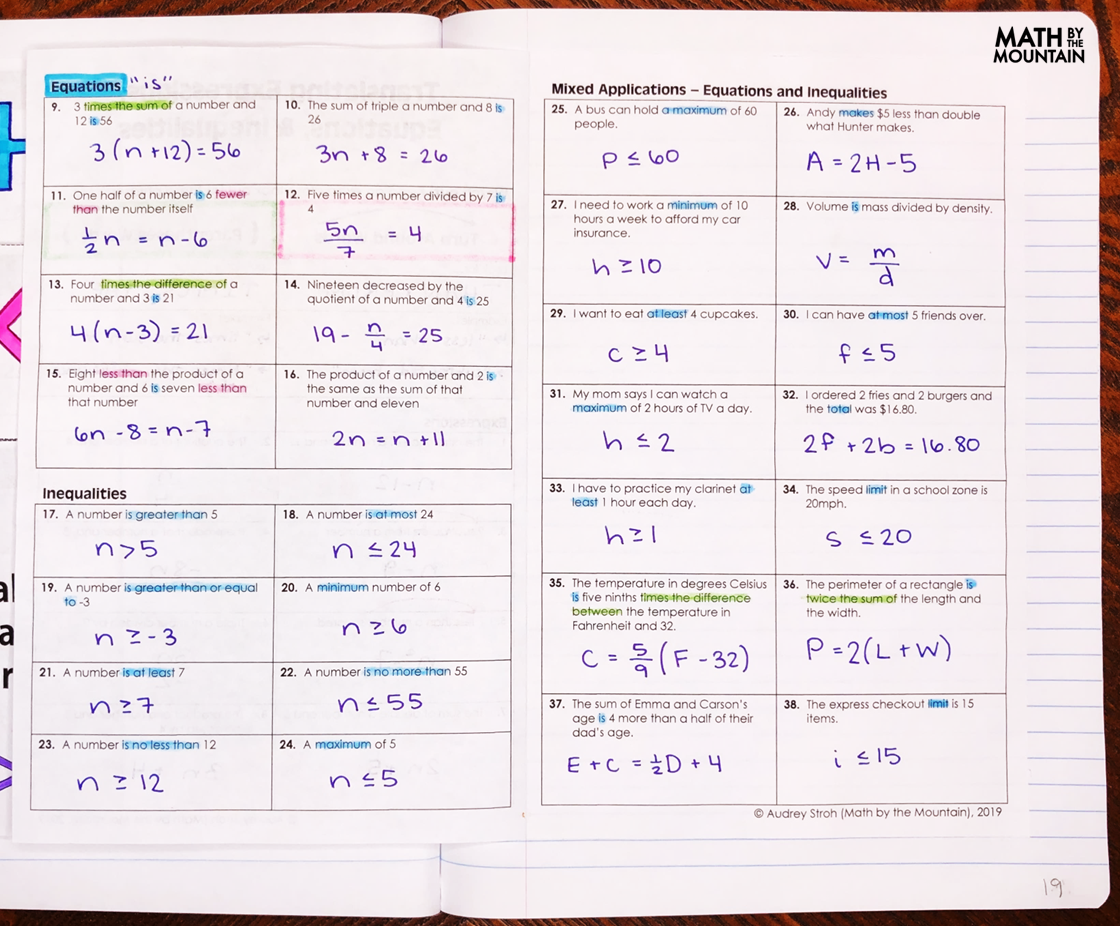 MATH BY THE MOUNTAIN
Equations "is"
9. 3 times the sum of a number and
12 is 56
3(n+12)=56
10. The sum of triple a number and 8 is
26
3n+8 = 26
11. One half of a number is 6 fewer
than the number itself
1/2 n = n-6
12. Five times a number divided by 7 is
4
5n/7 = 4
13. Four times the difference of a
number and 3 is 21
4(n-3)=21
14. Nineteen decreased by the
quotient of a number and 4 is 25
19 - n/4 = 25
15. Eight less than the product of a
number and 6 is seven less than
that number
6n-8=n-7
16. The product of a number and 2 is
the same as the sum of that
number and eleven
2n=n+11
Inequalities
17. A number is greater than 5
n>5
18. A number is at most 24
n ≤24
19. A number is greater than or equal
to -3
n ≥-3
20. A minimum number of 6
n≥6
21. A number is at least 7
n≥7
22. A number is no more than 55
n≤55
23. A number is no less than 12
n ≥12
24. A maximum of 5
n ≤5
Mixed Applications – Equations and Inequalities
25. A bus can hold a maximum of 60
people.
P ≤ 60
26. Andy makes $5 less than double
what Hunter makes.
A = 2H-5
27. I need to work a minimum of 10
hours a week to afford my car
insurance.
h ≥10
28. Volume is mass divided by density.
V = m/d
29. I want to eat at least 4 cupcakes.
c ≥4
30. I can have at most 5 friends over.
f ≤5
31. My mom says I can watch a
maximum of 2 hours of TV a day.
h ≤ 2
32. I ordered 2 fries and 2 burgers and
the total was $16.80.
2f +2b = 16.80
33. I have to practice my clarinet at
least 1 hour each day.
h≥1
34. The speed limit in a school zone is
20mph.
s ≤20
35. The temperature in degrees Celsius
is five ninths times the difference
between the temperature in
Fahrenheit and 32.
C = 5/9 (F-32)
36. The perimeter of a rectangle is
twice the sum of the length and
the width.
P=2(L+W)
37. The sum of Emma and Carson's
age is 4 more than a half of their
dad's age.
E+C = 1/2 D + 4
38. The express checkout limit is 15
items.
i ≤15
© Audrey Stroh (Math by the Mountain), 2019
19